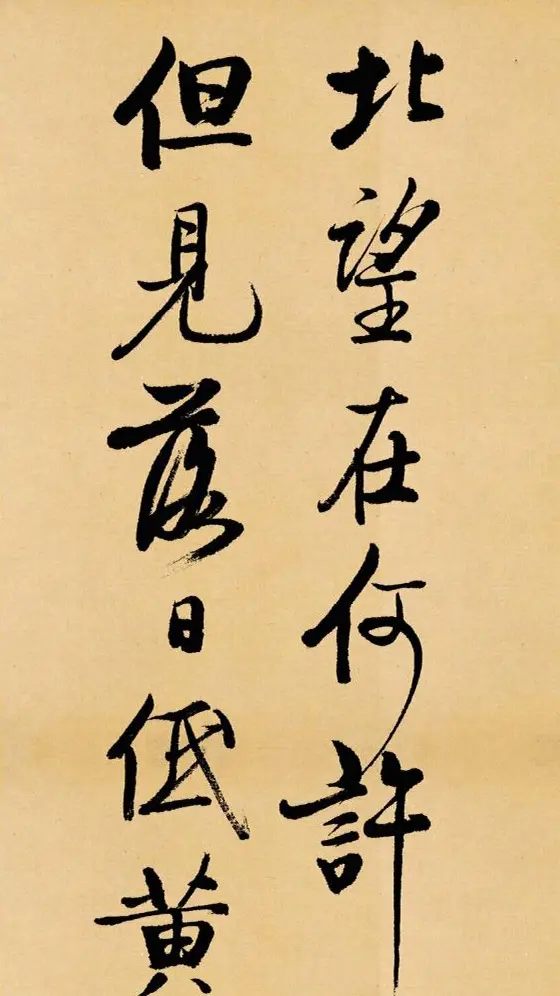 北望在何許
但見落日低黄